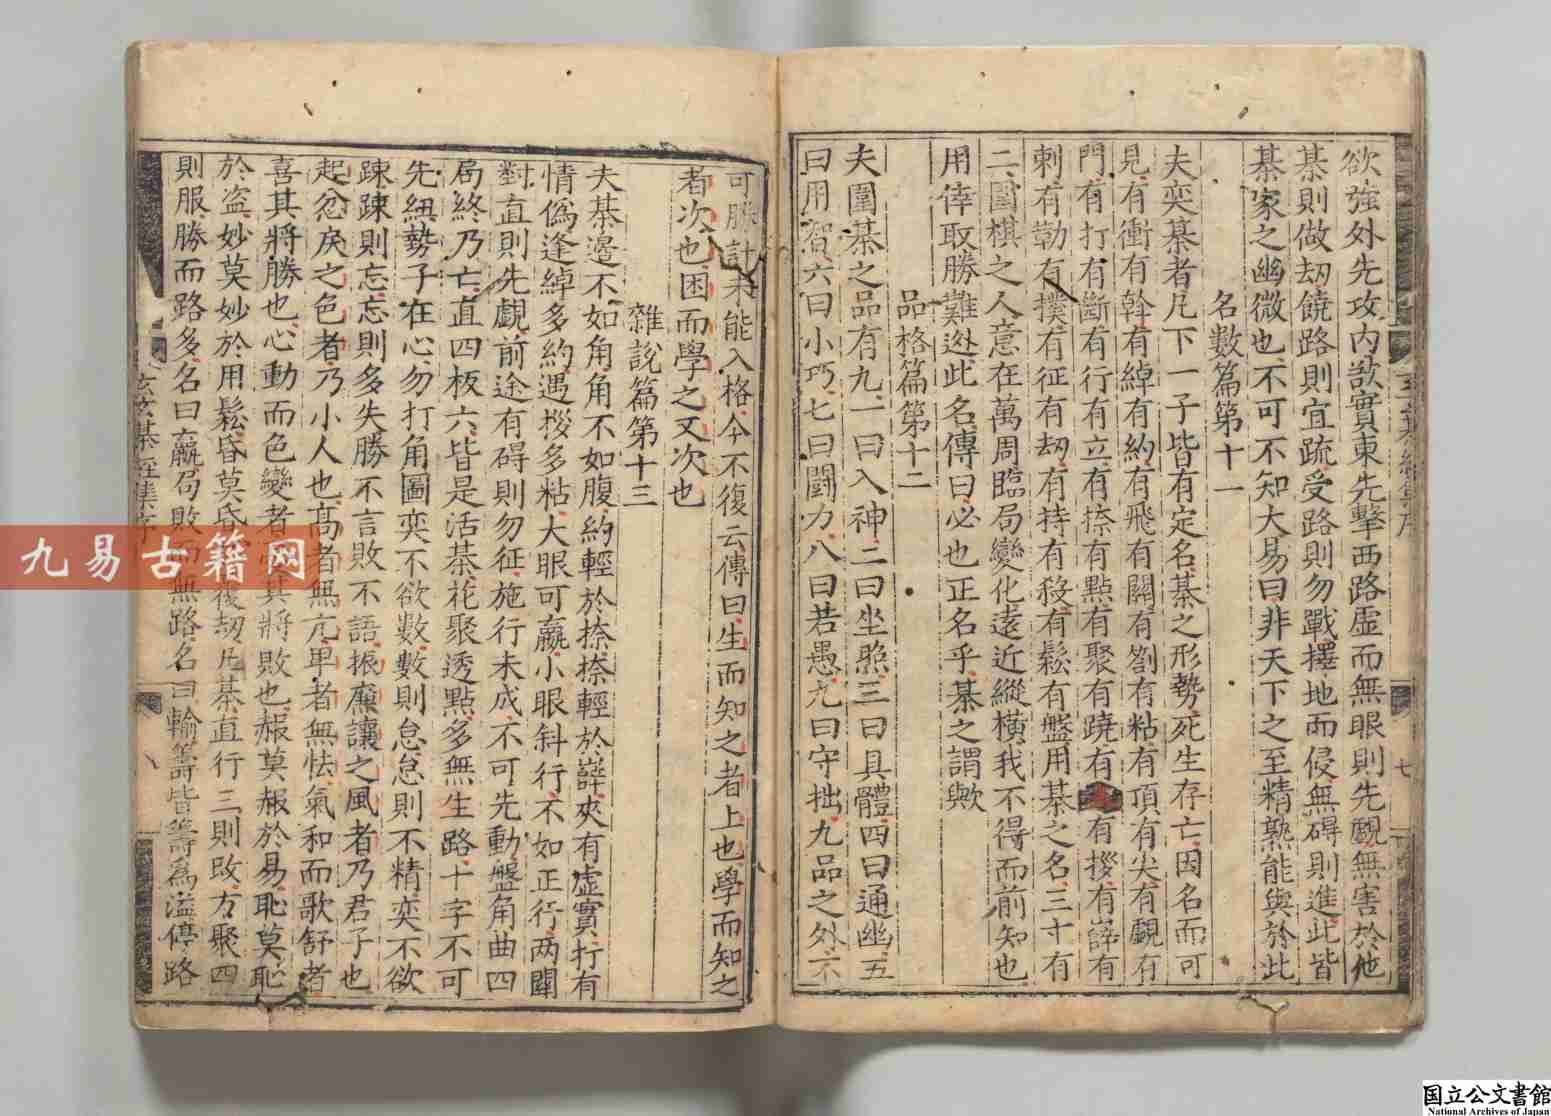 欲強外先攻內欲實東先擊西路虛而無眼則先覷無害於他
棊則做劫饒路則宜疏受路則勿戰擇地而侵無碍則進此皆
棊家之幽微也不可不知大易曰非天下之至精孰能與於此
名數篇第十一
夫奕棊者凡下一子皆有定名棊之形勢死生存亡因名而可
見有衝有斡有綽有約有飛有關有劄有粘有頂有尖有覷有
門有打有斷有行有立有捺有點有聚有蹺有 有拶有嶭有
刺有勒有撲有征有劫有持有殺有鬆有盤用棊之名三十有
二圍棋之人意在萬周臨局變化遠近縱橫我不得而前知也
用倖取勝難逃此名傳曰必也正名乎棊之謂歟
品格篇第十二
夫圍棊之品有九一曰入神二曰坐照三曰具體四曰通幽五
曰用智六曰小巧七曰鬪力八曰若愚九曰守拙九品之外不
可勝計未能入格今不復云傳曰生而知之者上也學而知之
者次也困而學之又次也
雜說篇第十三
夫棊邊不如角角不如腹約輕於捺捺輕於嶭夾有虛實打有
情偽逢綽多約遇拶多粘大眼可贏小眼斜行不如正行两關
對直則先覷前途有碍則勿征施行未成不可先動盤角曲四
局終乃亡直四板六皆是活棊花聚透點多無生路十字不可
先紐勢子在心勿打角圖奕不欲數數則怠怠則不精奕不欲
踈踈則忘忘則多失勝不言敗不語振廉讓之風者乃君子也
起忿戾之色者乃小人也高者無亢卑者無怯氣和而歌舒者
喜其將勝也心動而色變者 其將敗也赧莫赧於易恥莫恥
於盗妙莫妙於用鬆昏莫昏 復劫凡棊直行三則改方聚四
則服勝而路多名曰贏局敗而無路名曰輸籌皆籌為溢停路
玄玄棊經集序
七
八
九易古籍网
国立公文書館
National Archives of Japan